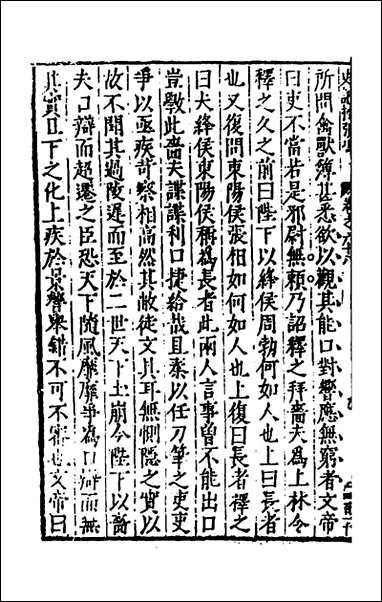 所問禽獸簿甚悉欲以觀其能口對響應無窮者文帝
曰吏不當若是邪尉無賴乃詔釋之拜嗇夫為上林令
釋之久之前曰陛下以絳侯周勃何如人也上曰長者
也又復問東陽侯張相如何如人也上復曰長者釋之
曰夫絳侯東陽侯稱為長者此兩人言事曾不能出口
豈斆此嗇夫諜諜利口捷給哉且秦以任刀筆之吏吏
爭以亟疾苛察相高然其敝徒文具耳無惻隱之實以
故不聞其過陵遲而至於二世天下土崩今陛下以嗇
夫口辯而超遷之臣恐天下隨風靡靡爭為口辯而無
其實且下之化上疾於景響舉錯不可不審也文帝曰